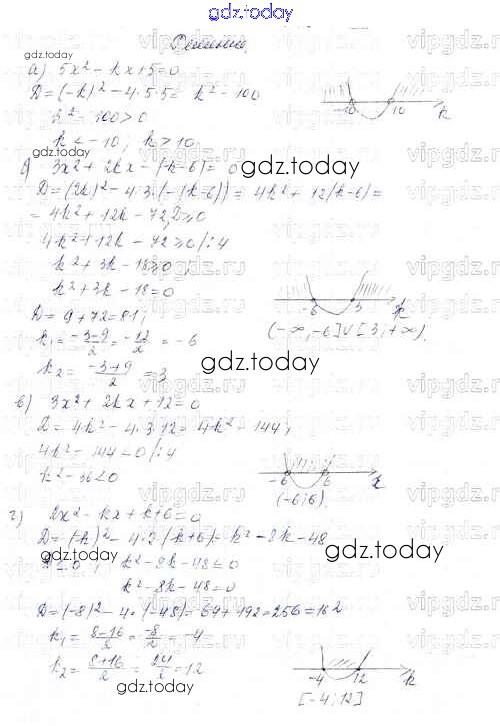 gdz.today
Решение.
gdz.today
а) 5x² - kx + 5 = 0
D = (-k)² - 4·5·5 = k² - 100
k² - 100 > 0
k < -10; k > 10
-10 10 k
gdz.today
б) 3x² + 2kx - (k-6) = 0
D = (2k)² - 4·3·(-(k-6)) = 4k² + 12(k-6) =
= 4k² + 12k - 72, D ≥ 0
4k² + 12k - 72 ≥ 0 /:4
k² + 3k - 18 ≥ 0;
k² + 3k - 18 = 0
D = 9 + 72 = 81;
k₁ = (-3-9)/2 = -12/2 = -6
k₂ = (-3+9)/2 = 3
-6 3 k
(-∞; -6] ∪ [3; +∞).
gdz.today
в) 3x² + 2kx + 12 = 0
D = 4k² - 4·3·12 = 4k² - 144;
4k² - 144 < 0 /:4
k² - 36 < 0
-6 6 x
(-6; 6).
gdz.today
г) 2x² - kx + k+6 = 0
D = (-k)² - 4·2·(k+6) = k² - 8k - 48
gdz.today
k² - 8k - 48 ≤ 0
k² - 8k - 48 = 0
D = (-8)² - 4·(-48) = 64 + 192 = 256 = 16²
k₁ = (8-16)/2 = -8/2 = -4
k₂ = (8+16)/2 = 24/2 = 12
-4 12 k
[-4; 12]
gdz.today
vipgdz.ru